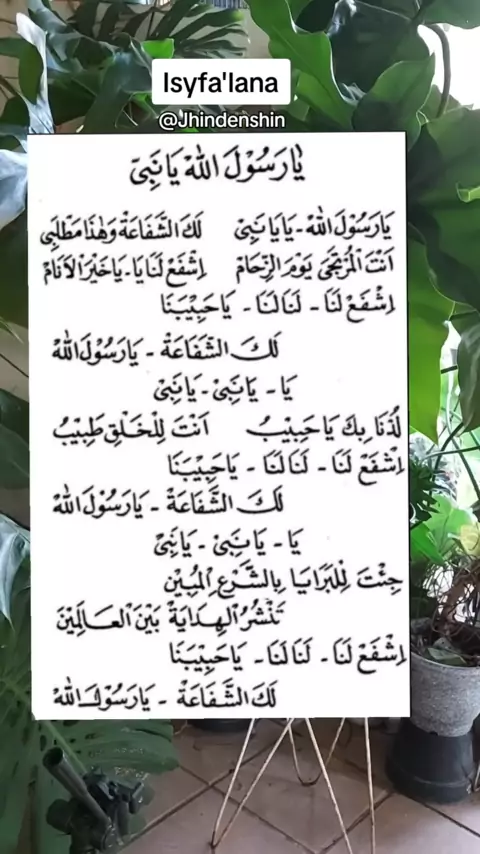 Isyfa'lana
@Jhindenshin
يَارَسُوْلَ اللّٰهْ يَانَبِىّ
يَارَسُوْلَ اللّٰهْ - يَايَانَبِىّ لَكَ الشَّفَاعَةْ وَهٰذَا مَطْلَبِى
اَنْتَ الْمُرْتَجَى يَوْمَ الزِّحَامْ اِشْفَعْ لَنَايَا - يَاخَيْرَالْاَنَامْ
اِشْفَعْ لَنَا - لَنَالَنَا - يَاحَبِيْبَنَا
لَكَ الشَّفَاعَةْ - يَارَسُوْلَ اللّٰهْ
يَا - يَانَبِىْ - يَانَبِىْ
لُذْنَا بِكَ يَاحَبِيْبُ اَنْتَ لِلْخَلْقِ طَبِيْبُ
اِشْفَعْ لَنَا - لَنَالَنَا - يَاحَبِيْبَنَا
لَكَ الشَّفَاعَةْ - يَارَسُوْلَ اللّٰهْ
يَا - يَانَبِىْ - يَانَبِىْ
جِئْتَ لِلْبَرَايَا بِالشَّرْعِ الْمُبِيْنْ
تَنْشُرُ الْهِدَايَةْ بَيْنَ الْعَالَمِيْنْ
اِشْفَعْ لَنَا - لَنَالَنَا - يَاحَبِيْبَنَا
لَكَ الشَّفَاعَةْ - يَارَسُوْلَ اللّٰهْ